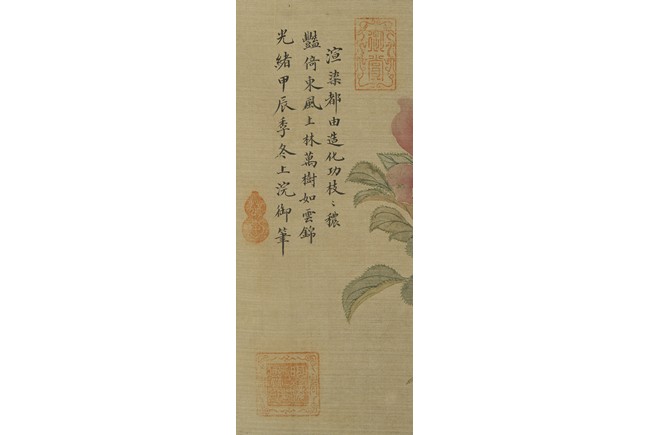 渲染都由造化功枝〻穠
豔倚東風上林萬樹如雲錦
光緒甲辰季冬上浣御筆